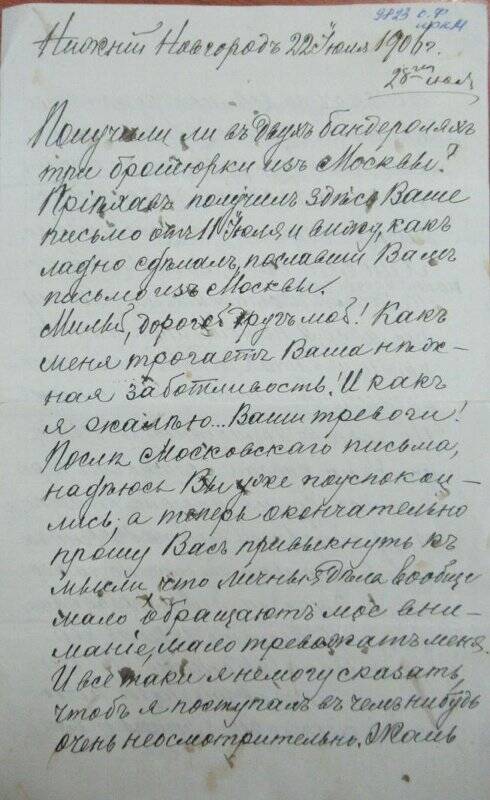 9823 О.Ф.
Нижній Новгородъ 22 Іюля 1906 г.
28го июля
Получили ли въ двухъ бандероляхъ
три брошюрки изъ Москвы?
Пріѣхавъ получилъ здѣсь Ваше
письмо отъ 11 Іюля и вижу, какъ
ладно сдѣлалъ, пославши Вамъ
письмо изъ Москвы.
Милый, дорогой другъ мой! Какъ
меня трогаетъ Ваша нѣж-
ная заботливость! И какъ
я жалѣю... Ваши тревоги!
Послѣ Московскаго письма,
надѣюсь Вы уже поуспокои-
лись, а теперь окончательно
прошу Васъ привыкнуть къ
мысли что личныя дѣла вообще
мало обращаютъ мое вни-
маніе, мало тревожатъ меня.
И все таки я не могу сказать,
чтобъ я поступалъ въ чемъ нибудь
очень неосмотрительно. Жаль